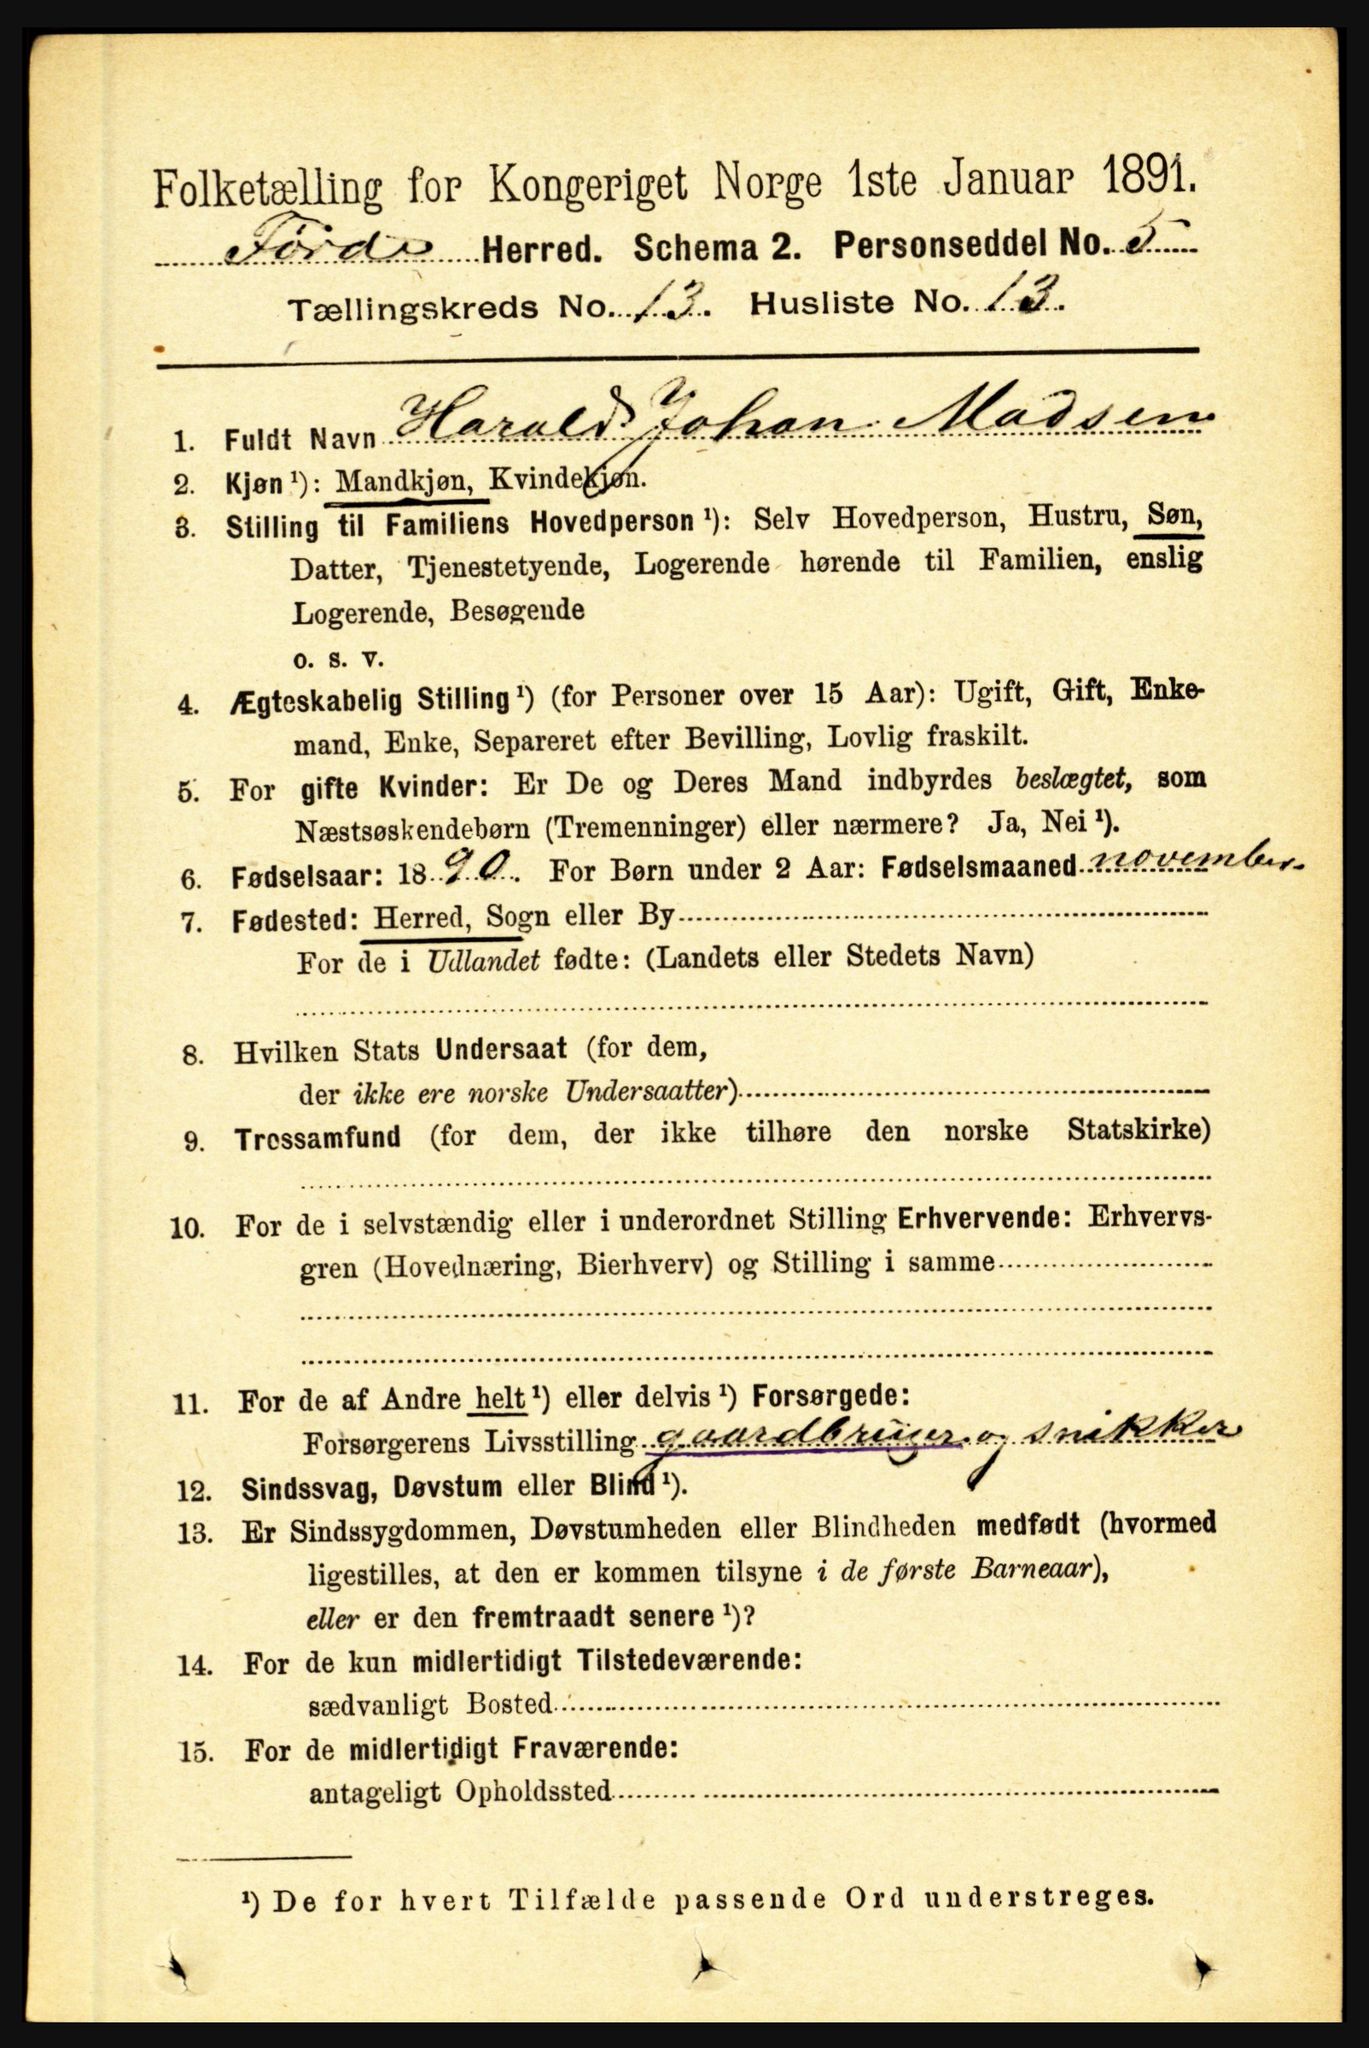 Folketælling for Kongeriget Norge 1ste Januar 1891.
Førde Herred. Schema 2. Personseddel No. 5
Tællingskreds No. 13. Husliste No. 13.
1. Fuldt Navn Harald Johan Madsen
2. Kjøn ¹): Mandkjøn, Kvindekjøn.
3. Stilling til Familiens Hovedperson ¹): Selv Hovedperson, Hustru, Søn,
Datter, Tjenestetyende, Logerende hørende til Familien, enslig
Logerende, Besøgende
o. s. v.
4. Ægteskabelig Stilling ¹) (for Personer over 15 Aar): Ugift, Gift, Enke-
mand, Enke, Separeret efter Bevilling, Lovlig fraskilt.
5. For gifte Kvinder: Er De og Deres Mand indbyrdes beslægtet, som
Næstsøskendebørn (Tremenninger) eller nærmere? Ja, Nei ¹).
6. Fødselsaar: 1890. For Børn under 2 Aar: Fødselsmaaned november.
7. Fødested: Herred, Sogn eller By
For de i Udlandet fødte: (Landets eller Stedets Navn)
8. Hvilken Stats Undersaat (for dem,
der ikke ere norske Undersaatter)
9. Trossamfund (for dem, der ikke tilhøre den norske Statskirke)
10. For de i selvstændig eller i underordnet Stilling Erhvervende: Erhvervs-
gren (Hovednæring, Bierhverv) og Stilling i samme
11. For de af Andre helt ¹) eller delvis ¹) Forsørgede:
Forsørgerens Livsstilling gaardbruger og snikker
12. Sindssvag, Døvstum eller Blind ¹).
13. Er Sindssygdommen, Døvstumheden eller Blindheden medfødt (hvormed
ligestilles, at den er kommen tilsyne i de første Barneaar),
eller er den fremtraadt senere ¹)?
14. For de kun midlertidigt Tilstedeværende:
sædvanligt Bosted
15. For de midlertidigt Fraværende:
antageligt Opholdssted
¹) De for hvert Tilfælde passende Ord understreges.